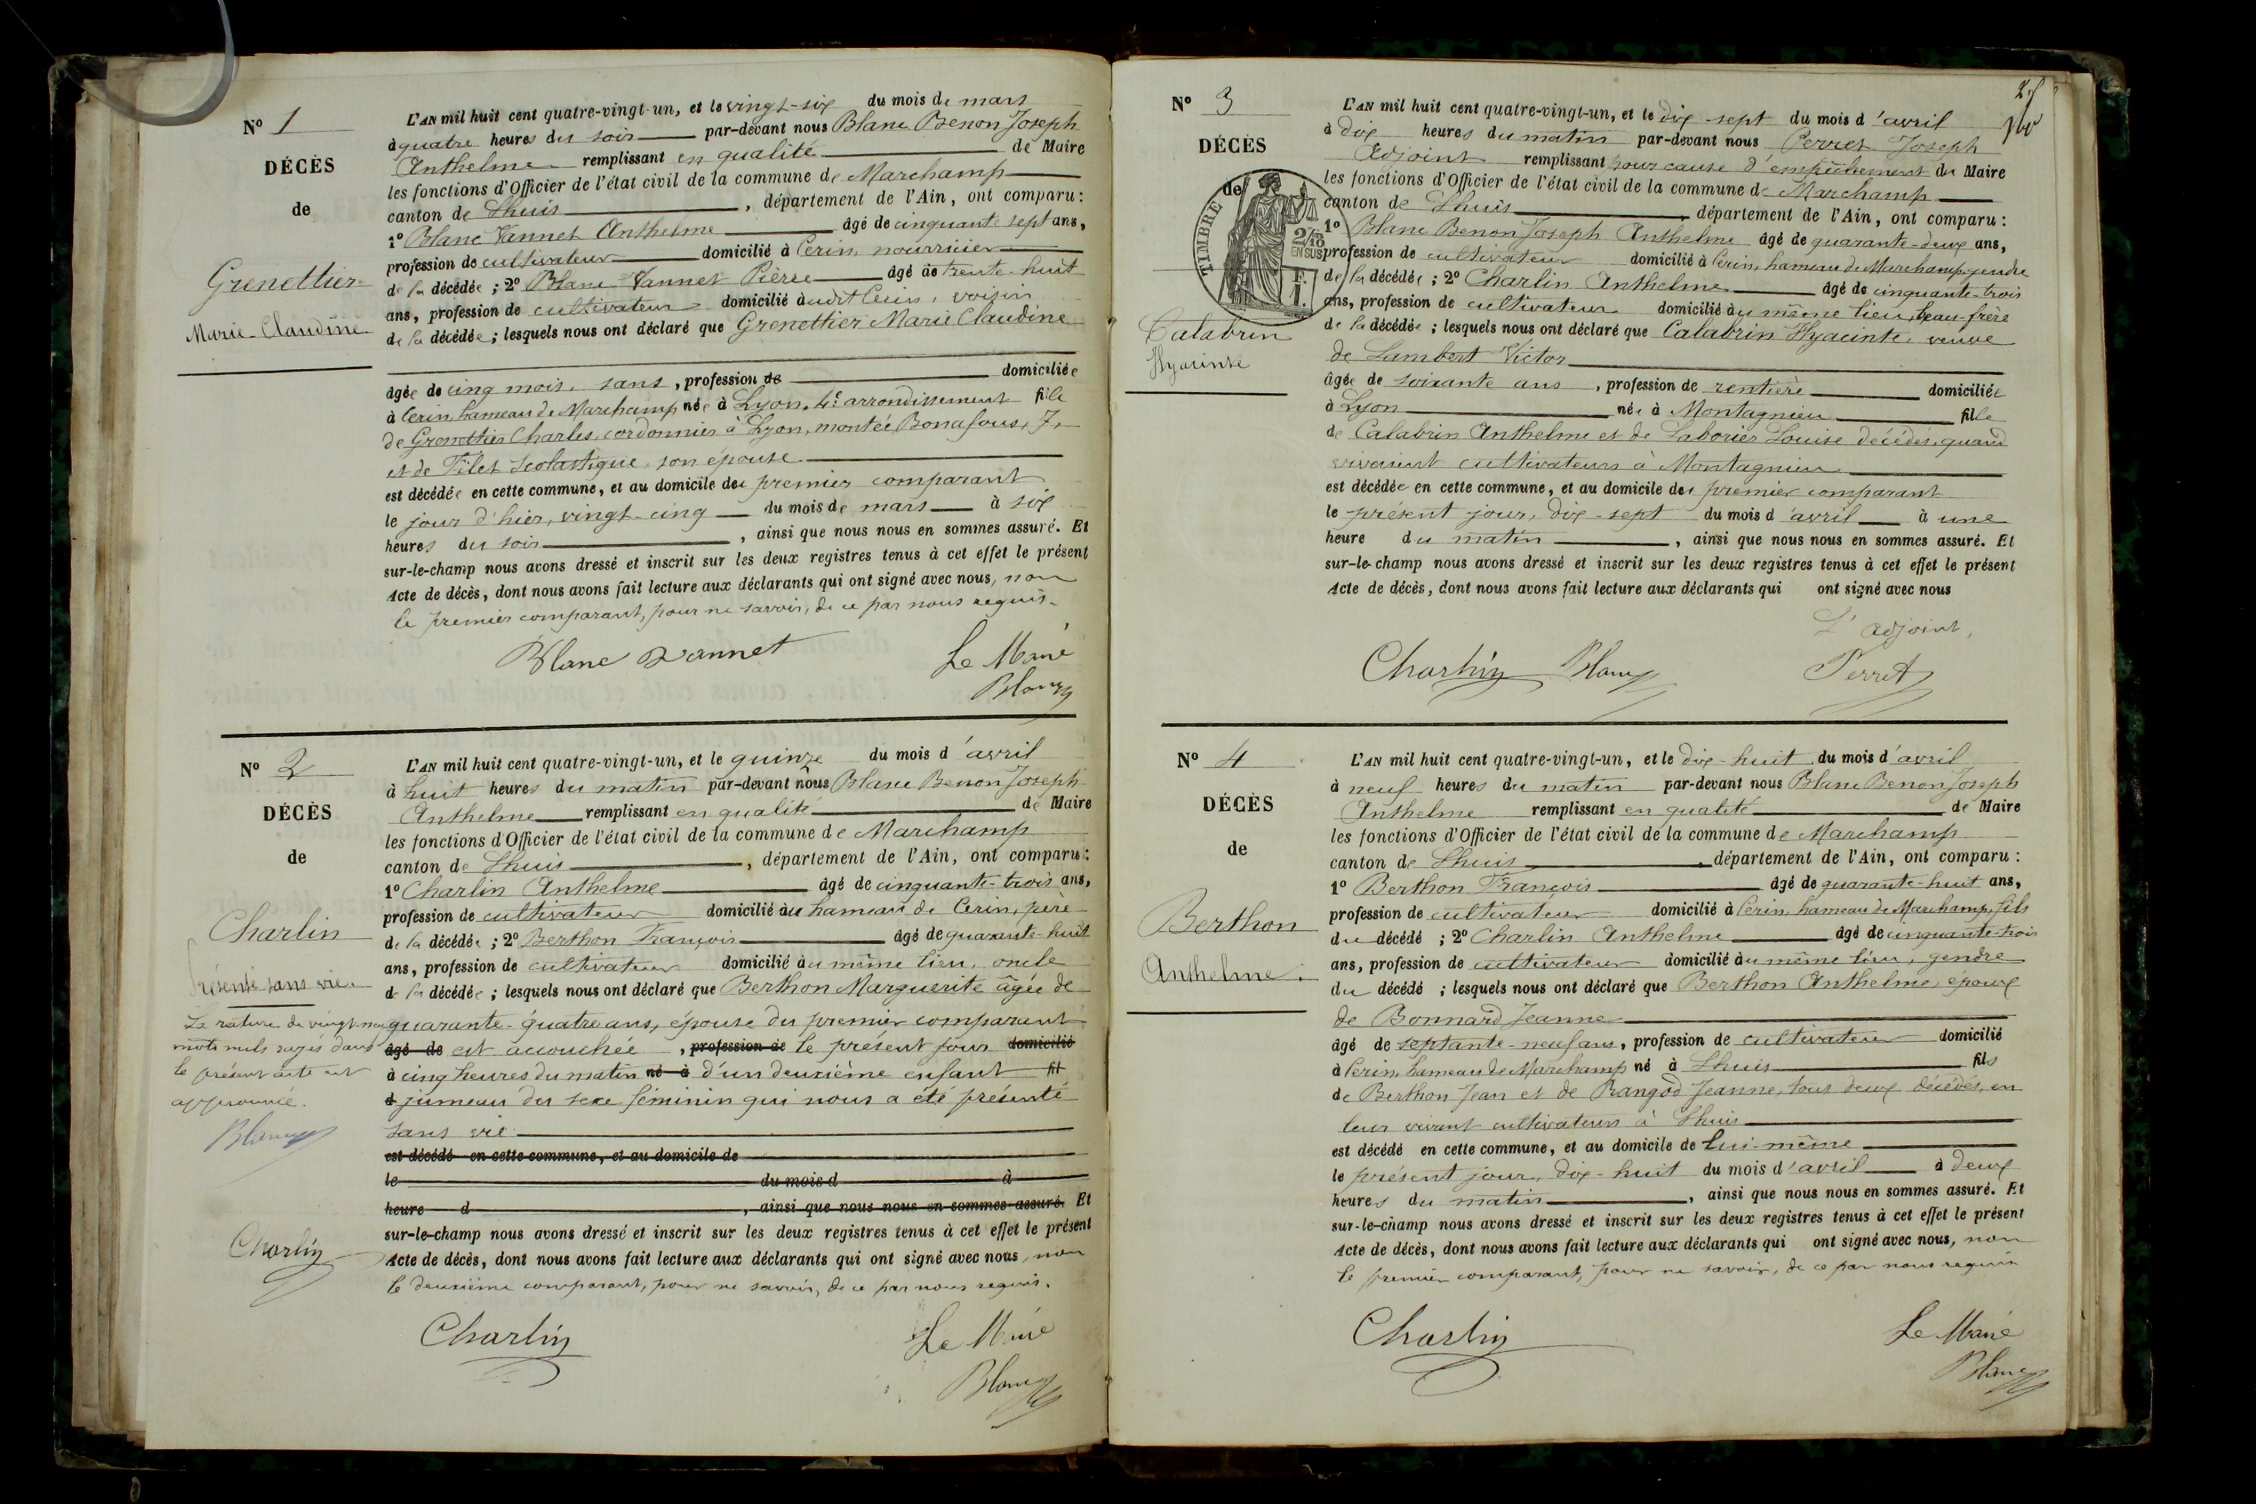 Nº 1
DÉCÈS
de
Grenettier
Marie Claudine
L'AN mil huit cent quatre-vingt-un, et le vingt-six du mois de mars
à quatre heures du soir par-devant nous Blanc Benon Joseph
Anthelme remplissant en qualité de Maire
les fonctions d'Officier de l'état civil de la commune de Marchamp
canton de Lhuis, département de l'Ain, ont comparu :
1º Blanc Vannet Anthelme âgé de cinquante sept ans,
profession de cultivateur domicilié à Cerin, nourricier
de la décédée ; 2º Blanc Vannet Pierre âgé de trente-huit
ans, profession de cultivateur domicilié audit Cerin, voisin
de la décédée ; lesquels nous ont déclaré que Grenettier Marie Claudine
âgée de cinq mois, sans, profession de domiciliée
à Cerin, hameau de Marchamp née à Lyon, 4e arrondissement fille
de Grenettier Charles, cordonnier à Lyon, montée Bonafous, 7,
et de Filet Scolastique, son épouse
est décédée en cette commune, et au domicile du premier comparant
le jour d'hier, vingt-cinq du mois de mars à six
heures du soir, ainsi que nous nous en sommes assuré. Et
sur-le-champ nous avons dressé et inscrit sur les deux registres tenus à cet effet le présent
Acte de décès, dont nous avons fait lecture aux déclarants qui ont signé avec nous, non
le premier comparant, pour ne savoir, de ce par nous requis.
Blanc Vannet
Le Maire
Blanc
Nº 2
DÉCÈS
de
Charlin
Présenté sans vie
La rature de vingt-neuf
mots nuls rayés dans
le présent acte est
approuvée.
Blanc
Charlin
L'AN mil huit cent quatre-vingt-un, et le quinze du mois d'avril
à huit heures du matin par-devant nous Blanc Benon Joseph
Anthelme remplissant en qualité de Maire
les fonctions d'Officier de l'état civil de la commune de Marchamp
canton de Lhuis, département de l'Ain, ont comparu :
1º Charlin Anthelme âgé de cinquante-trois ans,
profession de cultivateur domicilié au hameau de Cerin, père
de la décédée ; 2º Berthon François âgé de quarante-huit
ans, profession de cultivateur domicilié au même lieu, oncle
de la décédée ; lesquels nous ont déclaré que Berthon Marguerite âgée de
quarante-quatre ans, épouse du premier comparant
âgé de est accouchée, profession de le présent jour domicilié
à cinq heures du matin né à d'un deuxième enfant fil
d jumeau du sexe féminin qui nous a été présenté
sans vie
est décédé en cette commune, et au domicile de
le du mois d à
heure d, ainsi que nous nous en sommes assuré. Et
sur-le-champ nous avons dressé et inscrit sur les deux registres tenus à cet effet le présent
Acte de décès, dont nous avons fait lecture aux déclarants qui ont signé avec nous, non
le deuxième comparant, pour ne savoir, de ce par nous requis.
Charlin
Le Maire
Blanc
Nº 3
DÉCÈS
de
TIMBRE
2/10
EN SUS
Calabrin
Hyacinte
L'AN mil huit cent quatre-vingt-un, et le dix-sept du mois d'avril
à dix heures du matin par-devant nous Perret Joseph
Adjoint remplissant pour cause d'empêchement du Maire
les fonctions d'Officier de l'état civil de la commune de Marchamp
canton de Lhuis, département de l'Ain, ont comparu :
1º Blanc Benon Joseph Anthelme âgé de quarante-deux ans,
profession de cultivateur domicilié à Cerin, hameau de Marchamp, gendre
de la décédée ; 2º Charlin Anthelme âgé de cinquante-trois
ans, profession de cultivateur domicilié au même lieu, beau-frère
de la décédée ; lesquels nous ont déclaré que Calabrin Hyacinte, veuve
de Lambert Victor
âgée de soixante ans, profession de rentière domiciliée
à Lyon née à Montagnieu fille
de Calabrin Anthelme et de Laborier Louise décédés, quand
vivaient cultivateurs à Montagnieu
est décédée en cette commune, et au domicile du premier comparant
le présent jour, dix-sept du mois d'avril à une
heure du matin, ainsi que nous nous en sommes assuré. Et
sur-le-champ nous avons dressé et inscrit sur les deux registres tenus à cet effet le présent
Acte de décès, dont nous avons fait lecture aux déclarants qui ont signé avec nous
L'adjoint,
Charlin Blanc Perret
Nº 4
DÉCÈS
de
Berthon
Anthelme
L'AN mil huit cent quatre-vingt-un, et le dix-huit du mois d'avril
à neuf heures du matin par-devant nous Blanc Benon Joseph
Anthelme remplissant en qualité de Maire
les fonctions d'Officier de l'état civil de la commune de Marchamp
canton de Lhuis, département de l'Ain, ont comparu :
1º Berthon François âgé de quarante-huit ans,
profession de cultivateur domicilié à Cerin, hameau de Marchamp, fils
du décédé ; 2º Charlin Anthelme âgé de cinquante-trois
ans, profession de cultivateur domicilié au même lieu, gendre
du décédé ; lesquels nous ont déclaré que Berthon Anthelme, époux
de Bonnard Jeanne
âgé de septante-neuf ans, profession de cultivateur domicilié
à Cerin, hameau de Marchamp né à Lhuis fils
de Berthon Jean et de Rangod Jeanne, tous deux décédés, en
leur vivant cultivateurs à Lhuis
est décédé en cette commune, et au domicile de lui-même
le présent jour, dix-huit du mois d'avril à deux
heures du matin, ainsi que nous nous en sommes assuré. Et
sur-le-champ nous avons dressé et inscrit sur les deux registres tenus à cet effet le présent
Acte de décès, dont nous avons fait lecture aux déclarants qui ont signé avec nous, non
le premier comparant, pour ne savoir, de ce par nous requis
Charlin
Le Maire
Blanc